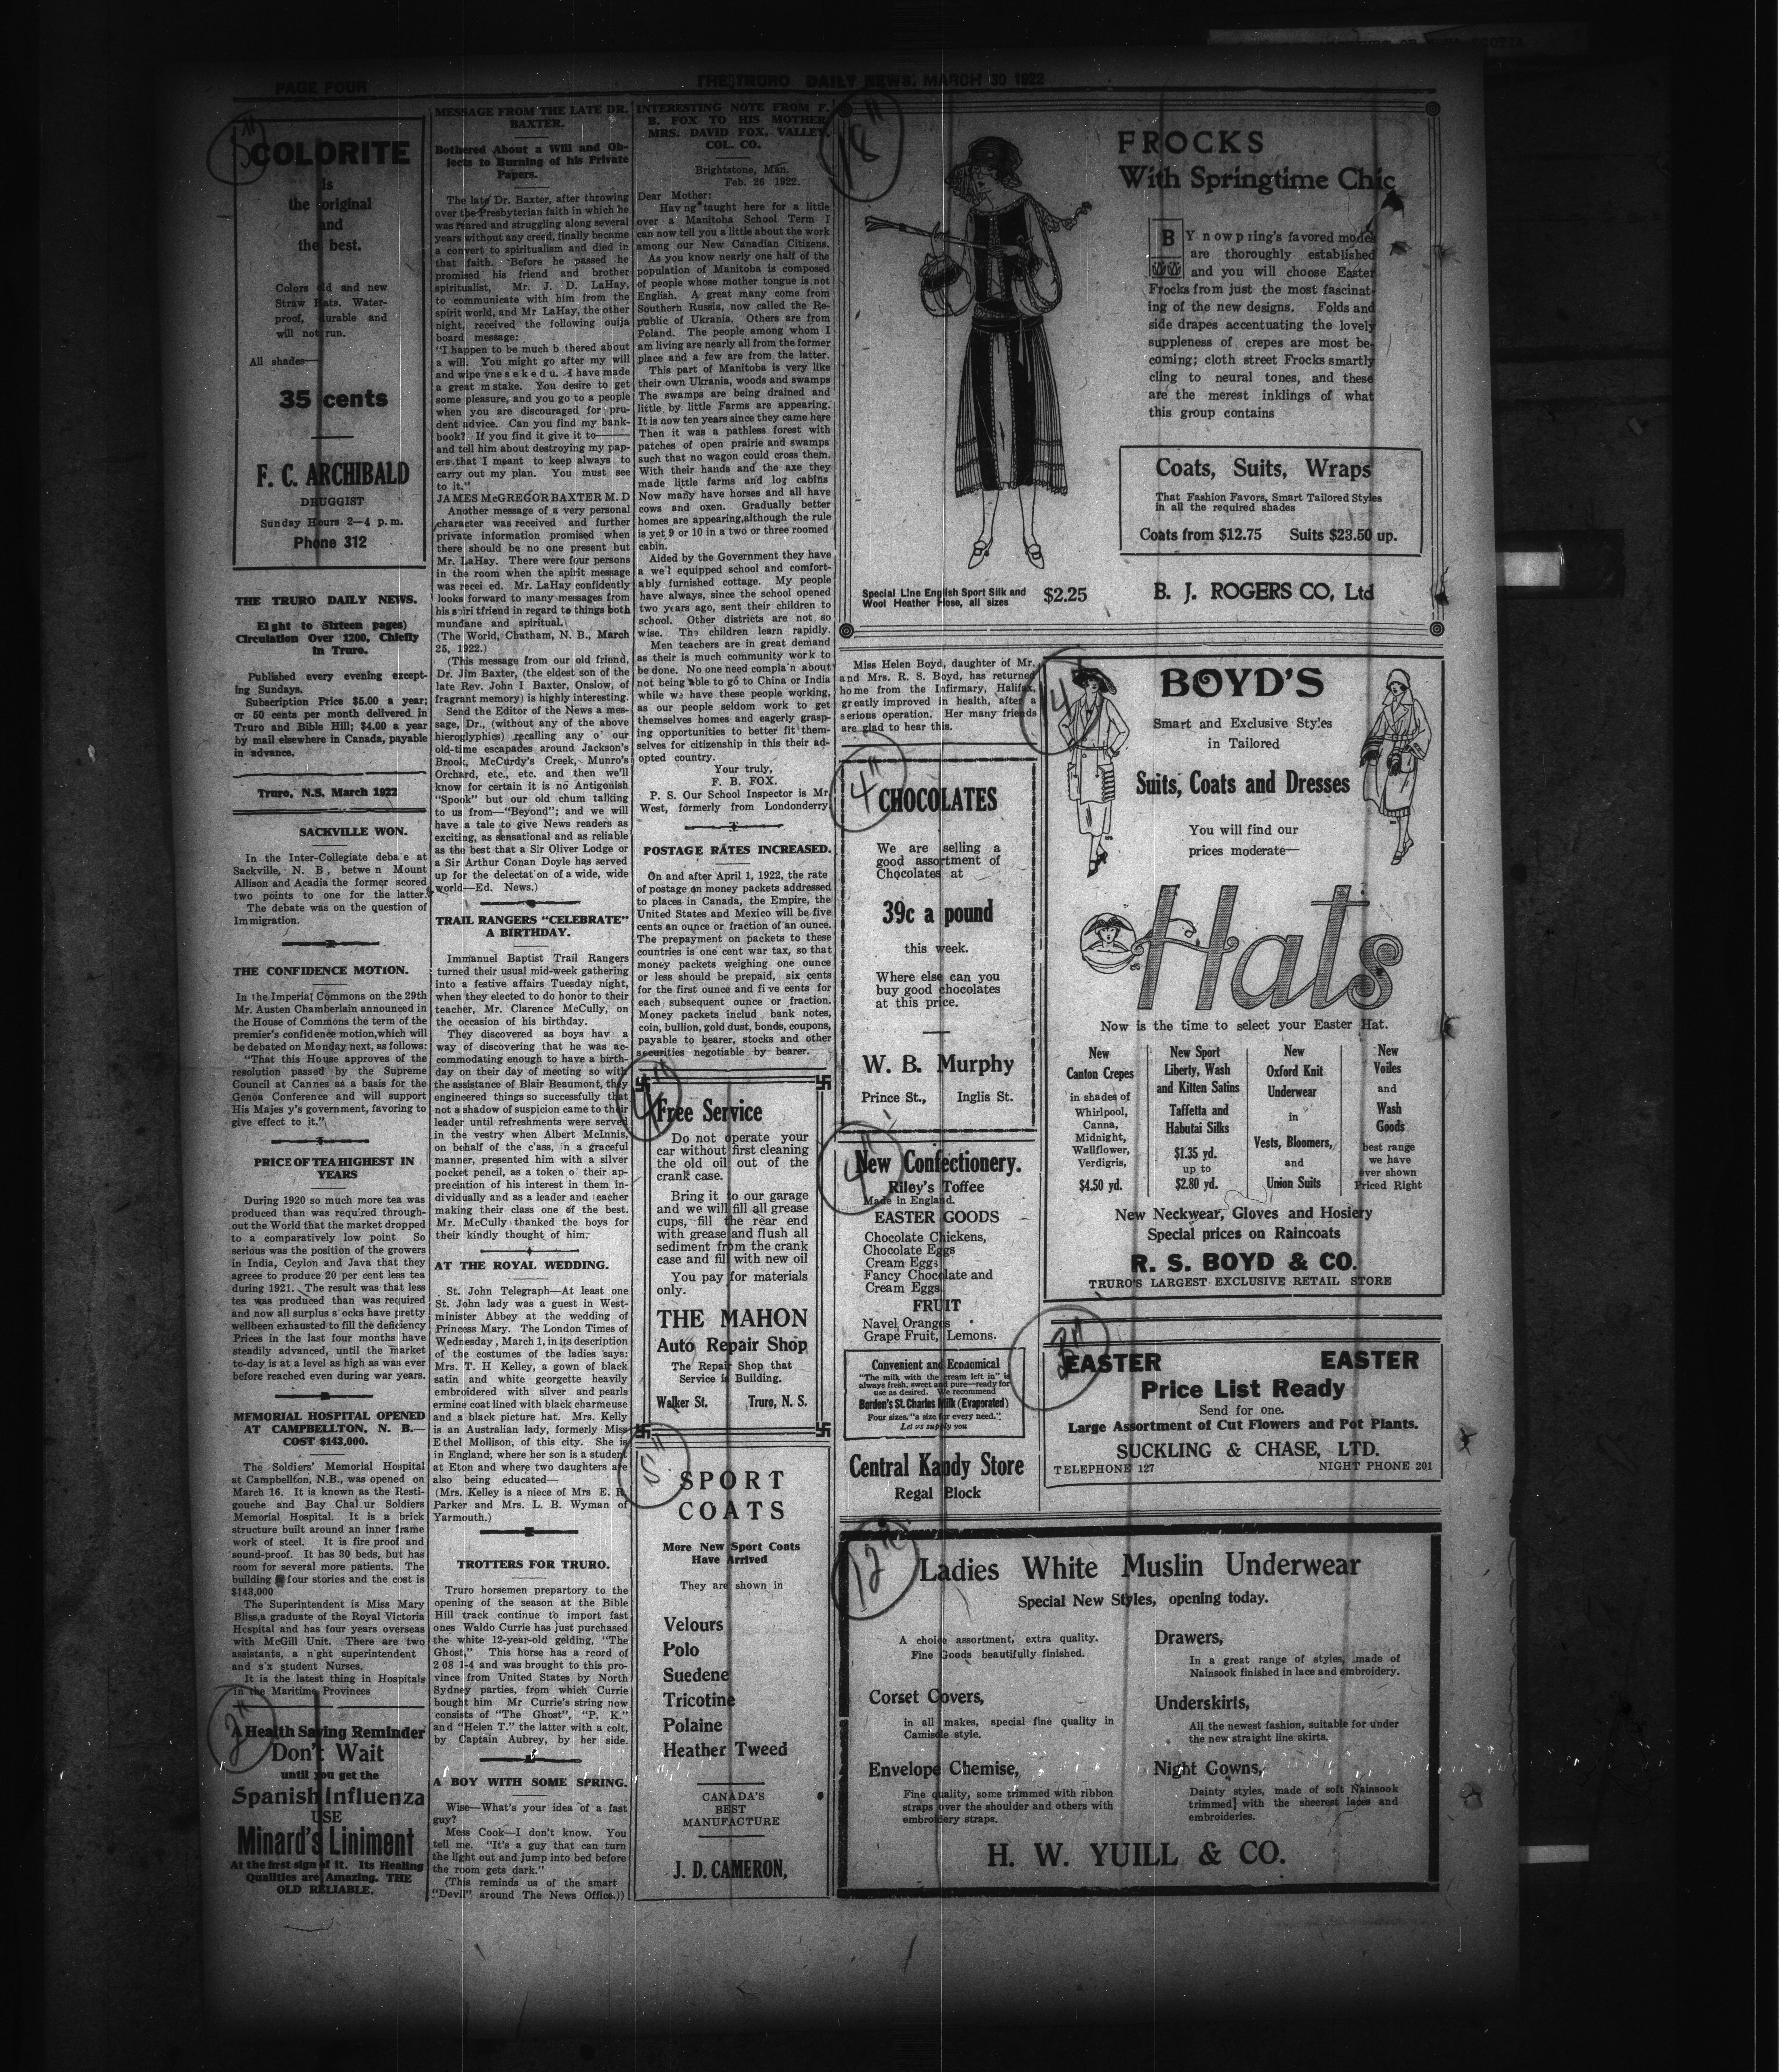 PAGE FOUR
THE TRURO DAILY NEWS. MARCH 30 1922
5"
COLORITE
Is
the original
and
the best.
Colors old and new
Straw Hats. Water-
proof, durable and
will not run.
All shades—
35 cents
F. C. ARCHIBALD
DRUGGIST
Sunday Hours 2—4 p.m.
Phone 312
THE TRURO DAILY NEWS.
Eight to Sixteen pages)
Circulation Over 1200, Chiefly
in Truro.
Published every evening except-
ing Sundays.
Subscription Price $5.00 a year;
or 50 cents per month delivered in
Truro and Bible Hill; $4.00 a year
by mail elsewhere in Canada, payable
in advance.
Truro, N.S. March 1922
SACKVILLE WON.
In the Inter-Collegiate deba e at
Sackville, N. B , betwe n Mount
Allison and Acadia the former scored
two points to one for the latter.
The debate was on the question of
Immigration.
THE CONFIDENCE MOTION.
In the Imperial Commons on the 29th
Mr. Austen Chamberlain announced in
the House of Commons the term of the
premier's confidence motion,which will
be debated on Monday next, as follows:
"That this House approves of the
resolution passed by the Supreme
Council at Cannes as a basis for the
Genoa Conference and will support
His Majes y's government, favoring to
give effect to it."
PRICE OF TEA HIGHEST IN
YEARS
During 1920 so much more tea was
produced than was required through-
out the World that the market dropped
to a comparatively low point So
serious was the position of the growers
in India, Ceylon and Java that they
agreee to produce 20 per cent less tea
during 1921. The result was that less
tea was produced than was required
and now all surplus s ocks have pretty
wellbeen exhausted to fill the deficiency
Prices in the last four months have
steadily advanced, until the market
to-day is at a level as high as was ever
before reached even during war years.
MEMORIAL HOSPITAL OPENED
AT CAMPBELLTON, N. B.—
COST $143,000.
The Soldiers' Memorial Hospital
at Campbellton, N.B., was opened on
March 16. It is known as the Resti-
gouche and Bay Chal ur Soldiers
Memorial Hospital. It is a brick
structure built around an inner frame
work of steel. It is fire proof and
sound-proof. It has 30 beds, but has
room for several more patients. The
building four stories and the cost is
$143,000
The Superintendent is Miss Mary
Bliss,a graduate of the Royal Victoria
Hospital and has four years overseas
with McGill Unit. There are two
assistants, a n'ght superintendent
and s'x student Nurses.
It is the latest thing in Hospitals
in the Maritime Provinces
2"
A Health Saving Reminder
Don't Wait
until you get the
Spanish Influenza
USE
Minard's Liniment
At the first sign of it. Its Healing
Qualities are Amazing. THE
OLD RELIABLE.
MESSAGE FROM THE LATE DR.
BAXTER.
Bothered About a Will and Ob-
jects to Burning of his Private
Papers.
The late Dr. Baxter, after throwing
over the Presbyterian faith in which he
was reared and struggling along several
years without any creed, finally became
a convert to spiritualism and died in
that faith. Before he passed he
promised his friend and brother
spiritualist, Mr. J. D. LaHay,
to communicate with him from the
spirit world, and Mr LaHay, the other
night, received the following ouija
board message:
"I happen to be much b thered about
a will. You might go after my will
and wipe vne s e k e d u. I have made
a great m stake. You desire to get
some pleasure, and you go to a people
when you are discouraged for pru-
dent advice. Can you find my bank-
book? If you find it give it to———
and tell him about destroying my pap-
ers that I meant to keep always to
carry out my plan. You must see
to it."
JAMES McGREGOR BAXTER M. D
Another message of a very personal
character was received and further
private information promised when
there should be no one present but
Mr. LaHay. There were four persons
in the room when the spirit message
was recei ed. Mr. LaHay confidently
looks forward to many messages from
his spiri tfriend in regard to things both
mundane and spiritual.
(The World, Chatham, N. B., March
25, 1922.)
(This message from our old friend,
Dr. Jim Baxter, (the eldest son of the
late Rev. John I Baxter, Onslow, of
fragrant memory) is highly interesting.
Send the Editor of the News a mes-
sage, Dr., (without any of the above
hieroglyphics) recalling any o' our
old-time escapades around Jackson's
Brook, McCurdy's Creek, Munro's
Orchard, etc., etc. and then we'll
know for certain it is no Antigonish
"Spook" but our old chum talking
to us from—"Beyond"; and we will
have a tale to give News readers as
exciting, as sensational and as reliable
as the best that a Sir Oliver Lodge or
a Sir Arthur Conan Doyle has served
up for the delectat'on of a wide, wide
world—Ed. News.)
TRAIL RANGERS "CELEBRATE"
A BIRTHDAY.
Immanuel Baptist Trail Rangers
turned their usual mid-week gathering
into a festive affairs Tuesday night,
when they elected to do honor to their
teacher, Mr. Clarence McCully, on
the occasion of his birthday.
They discovered as boys hav a
way of discovering that he was ac-
commodating enough to have a birth-
day on their day of meeting so with
the assistance of Blair Beaumont, they
engineered things so successfully that
not a shadow of suspicion came to their
leader until refreshments were served
in the vestry when Albert McInnis,
on behalf of the c'ass, in a graceful
manner, presented him with a silver
pocket pencil, as a token o' their ap-
preciation of his interest in them in-
dividually and as a leader and eacher
making their class one of the best.
Mr. McCully thanked the boys for
their kindly thought of him.
AT THE ROYAL WEDDING.
St. John Telegraph—At least one
St. John lady was a guest in West-
minister Abbey at the wedding of
Princess Mary. The London Times of
Wednesday, March 1, in its description
of the costumes of the ladies says:
Mrs. T. H Kelley, a gown of black
satin and white georgette heavily
embroidered with silver and pearls
ermine coat lined with black charmeuse
and a black picture hat. Mrs. Kelly
is an Australian lady, formerly Miss
Ethel Mollison, of this city. She is
in England, where her son is a student
at Eton and where two daughters are
also being educated—
(Mrs. Kelley is a niece of Mrs E. R.
Parker and Mrs. L. B. Wyman of
Yarmouth.)
TROTTERS FOR TRURO.
Truro horsemen prepartory to the
opening of the season at the Bible
Hill track continue to import fast
ones Waldo Currie has just purchased
the white 12-year-old gelding, "The
Ghost," This horse has a rcord of
2 08 1-4 and was brought to this pro-
vince from United States by North
Sydney parties, from which Currie
bought him Mr Currie's string now
consists of "The Ghost", "P. K."
and "Helen T." the latter with a colt,
by Captain Aubrey, by her side.
A BOY WITH SOME SPRING.
Wise—What's your idea of a fast
guy?
Mess Cook—I don't know. You
tell me. "It's a guy that can turn
the light out and jump into bed before
the room gets dark."
(This reminds us of the smart
"Devil" around The News Office.))
INTERESTING NOTE FROM F.
B. FOX TO HIS MOTHER
MRS. DAVID FOX, VALLEY,
COL. CO.
Brightstone, Man.
Feb. 26 1922.
Dear Mother:
Hav ng taught here for a little
over a Manitoba School Term I
can now tell you a little about the work
among our New Canadian Citizens.
As you know nearly one half of the
population of Manitoba is composed
of people whose mother tongue is not
English. A great many come from
Southern Russia, now called the Re-
public of Ukrania. Others are from
Poland. The people among whom I
am living are nearly all from the former
place and a few are from the latter.
This part of Manitoba is very like
their own Ukrania, woods and swamps
The swamps are being drained and
little by little Farms are appearing.
It is now ten years since they came here
Then it was a pathless forest with
patches of open prairie and swamps
such that no wagon could cross them.
With their hands and the axe they
made little farms and log cabins
Now many have horses and all have
cows and oxen. Gradually better
homes are appearing,although the rule
is yet 9 or 10 in a two or three roomed
cabin.
Aided by the Government they have
a we'l equipped school and comfort-
ably furnished cottage. My people
have always, since the school opened
two years ago, sent their children to
school. Other districts are not so
wise. The children learn rapidly.
Men teachers are in great demand
as their is much community work to
be done. No one need compla'n about
not being able to go to China or India
while we have these people working,
as our people seldom work to get
themselves homes and eagerly grasp-
ing opportunities to better fit them-
selves for citizenship in this their ad-
opted country.
Your truly,
F. B. FOX.
P. S. Our School Inspector is Mr.
West, formerly from Londonderry
POSTAGE RATES INCREASED.
On and after April 1, 1922, the rate
of postage on money packets addressed
to places in Canada, the Empire, the
United States and Mexico will be five
cents an ounce or fraction of an ounce.
The prepayment on packets to these
countries is one cent war tax, so that
money packets weighing one ounce
or less should be prepaid, six cents
for the first ounce and five cents for
each subsequent ounce or fraction.
Money packets includ bank notes,
coin, bullion, gold dust, bonds, coupons,
payable to bearer, stocks and other
securities negotiable by bearer.
4"
Free Service
Do not operate your
car without first cleaning
the old oil out of the
crank case.
Bring it to our garage
and we will fill all grease
cups, fill the rear end
with grease and flush all
sediment from the crank
case and fill with new oil
You pay for materials
only.
THE MAHON
Auto Repair Shop
The Repair Shop that
Service is Building.
Walker St. Truro, N. S.
5"
SPORT
COATS
More New Sport Coats
Have Arrived
They are shown in
Velours
Polo
Suedene
Tricotine
Polaine
Heather Tweed
CANADA'S
BEST
MANUFACTURE
J. D. CAMERON,
18"
FROCKS
With Springtime Chic
BY now p ring's favored modes
are thoroughly established
and you will choose Easter
Frocks from just the most fascinat-
ing of the new designs. Folds and
side drapes accentuating the lovely
suppleness of crepes are most be-
coming; cloth street Frocks smartly
cling to neural tones, and these
are the merest inklings of what
this group contains
Coats, Suits, Wraps
That Fashion Favors, Smart Tailored Styles
in all the required shades
Coats from $12.75 Suits $23.50 up.
Special Line English Sport Silk and
Wool Heather Hose, all sizes $2.25
B. J. ROGERS CO, Ltd
Miss Helen Boyd, daughter of Mr.
and Mrs. R. S. Boyd, has returned
home from the Infirmary, Halifax,
greatly improved in health, after a
serious operation. Her many friends
are glad to hear this.
4"
CHOCOLATES
We are selling a
good assortment of
Chocolates at
39c a pound
this week.
Where else can you
buy good chocolates
at this price.
W. B. Murphy
Prince St., Inglis St.
4"
New Confectionery.
Riley's Toffee
Made in England.
EASTER GOODS
Chocolate Chickens,
Chocolate Eggs
Cream Eggs
Fancy Chocolate and
Cream Eggs.
FRUIT
Navel Oranges
Grape Fruit, Lemons.
Convenient and Economical
"The milk with the cream left in" is
always fresh, sweet and pure—ready for
use as desired. We recommend
Borden's St. Charles Milk (Evaporated)
Four sizes, "a size for every need."
Let us supply you
Central Kandy Store
Regal Block
14"
BOYD'S
Smart and Exclusive Styles
in Tailored
Suits, Coats and Dresses
You will find our
prices moderate—
Hats
Now is the time to select your Easter Hat.
New
Canton Crepes
in shades of
Whirlpool,
Canna,
Midnight,
Wallflower,
Verdigris,
$4.50 yd.
New Sport
Liberty, Wash
and Kitten Satins
Taffetta and
Habutai Silks
$1.35 yd.
up to
$2.80 yd.
New
Oxford Knit
Underwear
in
Vests, Bloomers,
and
Union Suits
New
Voiles
and
Wash
Goods
best range
we have
ever shown
Priced Right
New Neckwear, Gloves and Hosiery
Special prices on Raincoats
R. S. BOYD & CO.
TRURO'S LARGEST EXCLUSIVE RETAIL STORE
EASTER EASTER
Price List Ready
Send for one.
Large Assortment of Cut Flowers and Pot Plants.
SUCKLING & CHASE, LTD.
TELEPHONE 127 NIGHT PHONE 201
12"
Ladies White Muslin Underwear
Special New Styles, opening today.
A choice assortment, extra quality.
Fine Goods beautifully finished.
Corset Covers,
in all makes, special fine quality in
Camisole style.
Envelope Chemise,
Fine quality, some trimmed with ribbon
straps over the shoulder and others with
embroidery straps.
Drawers,
In a great range of styles, made of
Nainsook finished in lace and embroidery.
Underskirts,
All the newest fashion, suitable for under
the new straight line skirts.
Night Gowns,
Dainty styles, made of soft Nainsook
trimmed with the sheerest laces and
embroideries.
H. W. YUILL & CO.